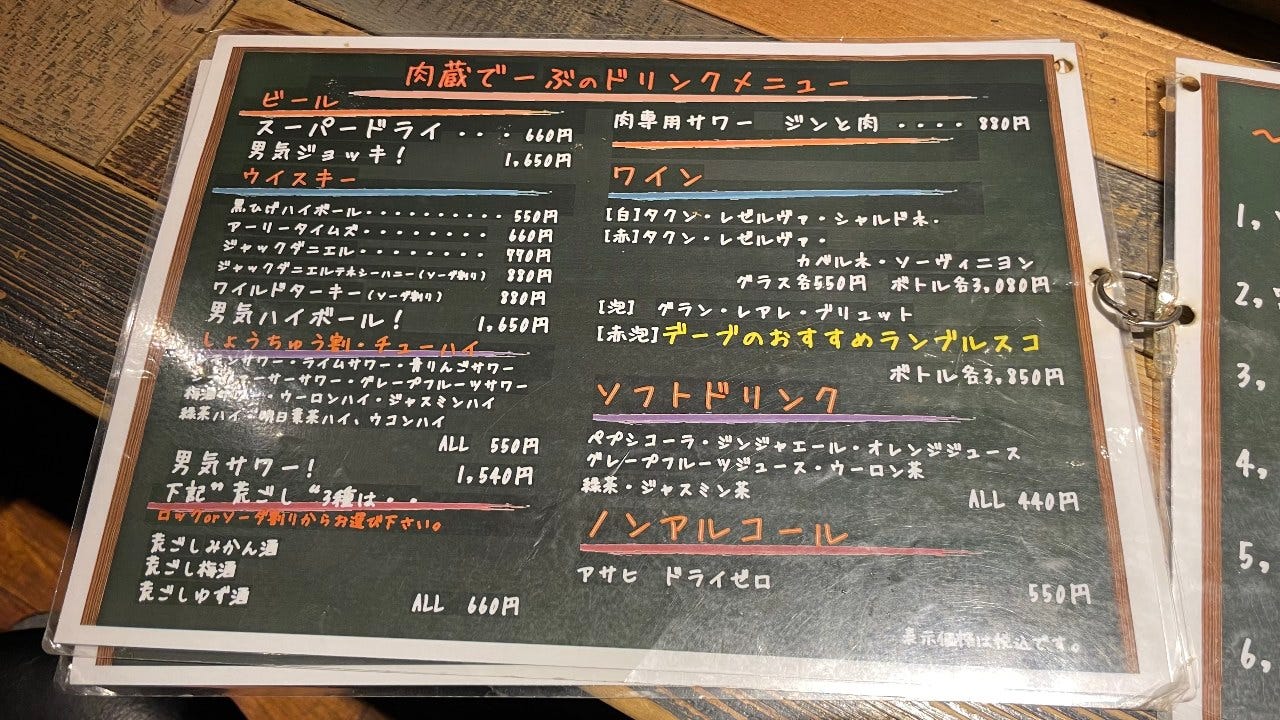 肉蔵でーぶのドリンクメニュー
ビール
スーパードライ ・・・・ 660円
男気ジョッキ! 1,650円
ウイスキー
黒ひげハイボール・・・・・・・・・・ 550円
アーリータイムズ・・・・・・・・ 660円
ジャックダニエル・・・・・・・・ 770円
ジャックダニエルテネシーハニー(ソーダ割り) 880円
ワイルドターキー(ソーダ割り) 880円
男気ハイボール! 1,650円
しょうちゅう割・チューハイ
サワー・ライムサワー・青りんごサワー
サワー・グレープフルーツサワー
梅酒サワー・ウーロンハイ・ジャスミンハイ
緑茶ハイ・明日葉茶ハイ、ウコンハイ
ALL 550円
男気サワー! 1,540円
下記"荒ごし"3種は・・
ロックorソーダ割りからお選び下さい。
荒ごしみかん酒
荒ごし梅酒
荒ごしゆず酒
ALL 660円
肉専用サワー ジンと肉 ・・・・ 880円
ワイン
[白]タクン・レゼルヴァ・シャルドネ・
[赤]タクン・レゼルヴァ・
カベルネ・ソーヴィニヨン
グラス各550円 ボトル各3,080円
[泡] グラン・レアレ・ブリュット
[赤泡]デーブのおすすめランブルスコ
ボトル各3,850円
ソフトドリンク
ペプシコーラ・ジンジャエール・オレンジジュース
グレープフルーツジュース・ウーロン茶
緑茶・ジャスミン茶
ALL 440円
ノンアルコール
アサヒ ドライゼロ 550円
表示価格は税込です。
~
1,
2,
3,
4,
5,
6,